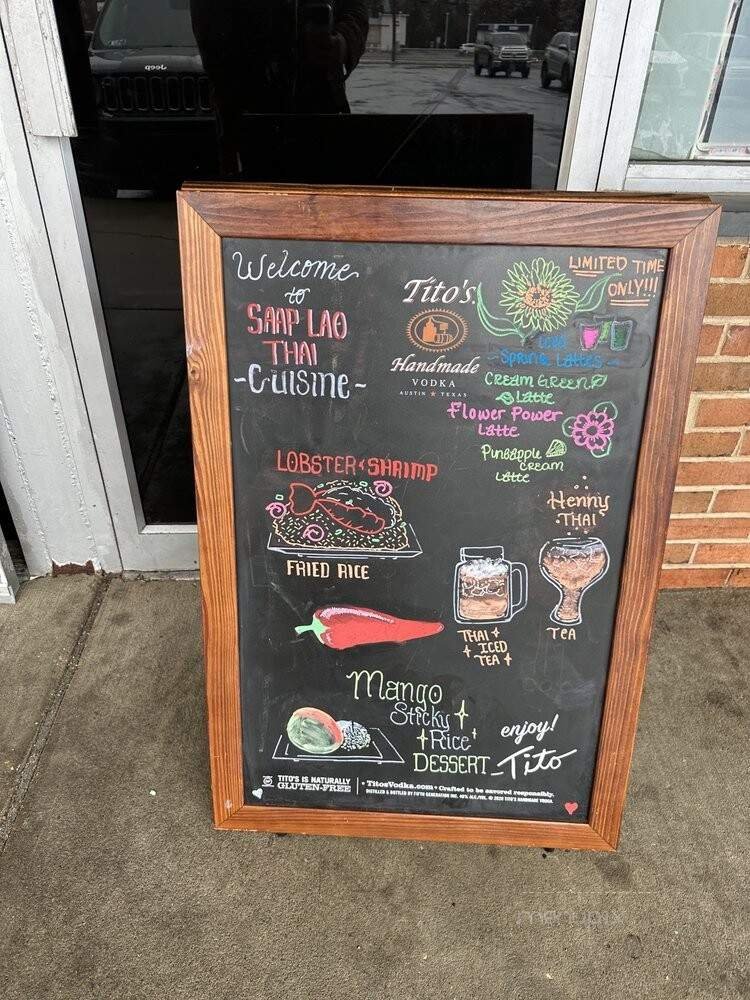 Welcome
to
SAAP LAO
THAI
-CUISINE-
Tito's
Handmade
VODKA
AUSTIN ★ TEXAS
LIMITED TIME
ONLY!!!
Iced
-Spring Lattes-
CREAM GREEN
Latte
Flower Power
Latte
Pineapple
cream
Latte
LOBSTER & SHRIMP
FRIED RICE
Henny
THAI
TEA
THAI
ICED
TEA
Mango
Sticky
Rice
DESSERT
enjoy!
-Tito
TITO'S IS NATURALLY
GLUTEN-FREE
• TitosVodka.com • Crafted to be savored responsibly.
DISTILLED & BOTTLED BY FIFTH GENERATION INC. 40% ALC./VOL. © 2020 TITO'S HANDMADE VODKA.
Jeep
menupix